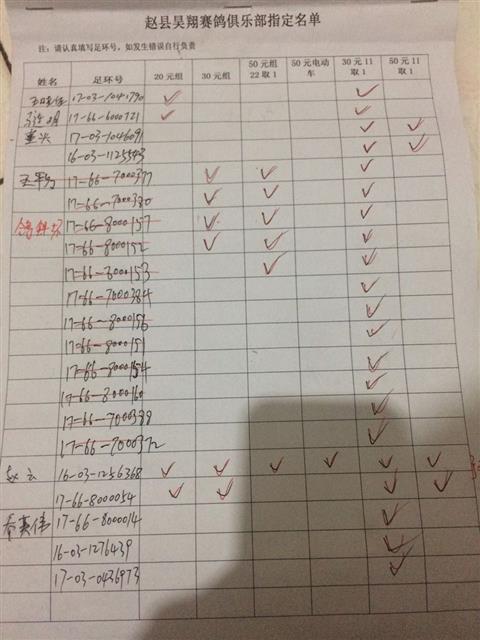 赵县昊翔赛鸽俱乐部指定名单
注：请认真填写足环号，如发生错误自行负责
姓名 足环号 20元组 30元组 50元组22取1 50元电动车 30元11取1 50元11取1
17-03-1041790 ✓ ✓
17-66-6000721 ✓ ✓
17-03-1046091 ✓ ✓
16-03-1125543 ✓ ✓
17-66-7000377 ✓ ✓ ✓
17-66-7000380 ✓ ✓ ✓
17-66-8000157 ✓ ✓ ✓
17-66-8000152 ✓ ✓ ✓
17-66-8000153 ✓ ✓
17-66-7000384 ✓
17-66-8000156 ✓
17-66-8000151 ✓
17-66-8000154 ✓
17-66-8000160 ✓
17-66-7000388 ✓
17-66-7000372 ✓
赵云 16-03-1256368 ✓ ✓ ✓ ✓ ✓ ✓
17-66-8000054 ✓ ✓ ✓ ✓
秦英伟 17-66-8000014 ✓
16-03-1276439 ✓
17-03-0436973 ✓